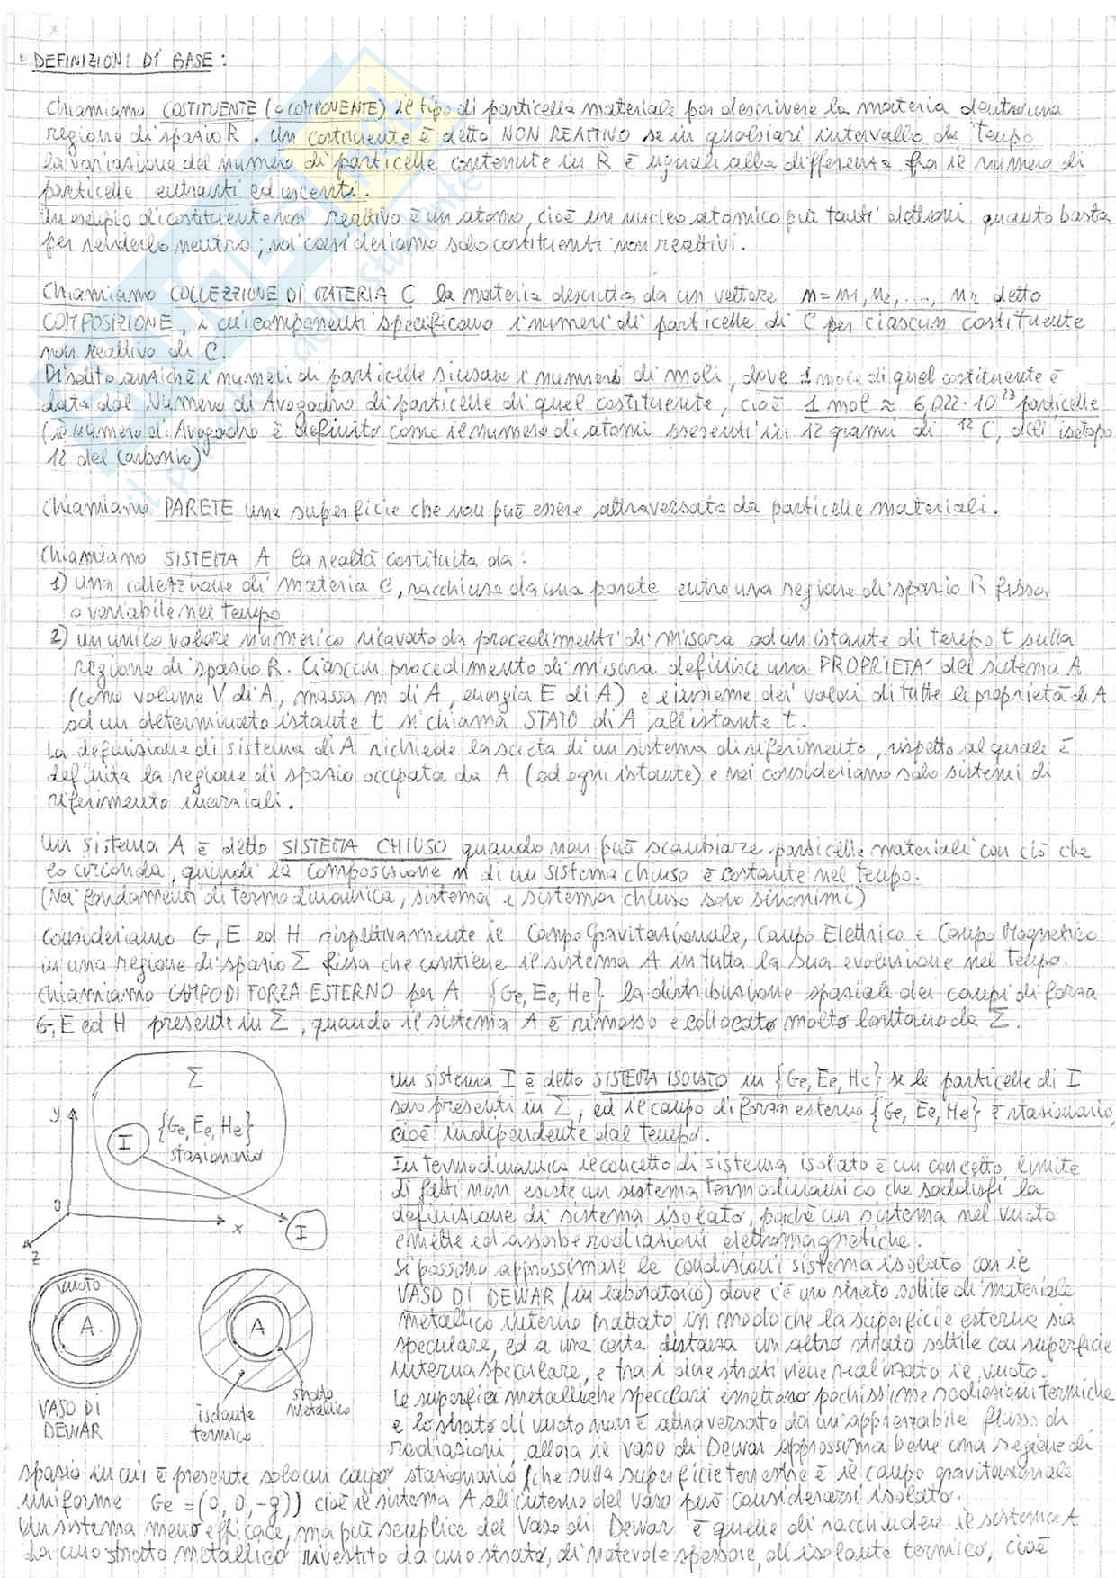 DEFINIZIONI DI BASE:
Chiamiamo COSTITUENTE (o COMPONENTE) il tipo di particella materiale per descrivere la materia dentro una
regione di spazio R. Un costituente è detto NON REATTIVO se in qualsiasi intervallo di tempo
la variazione del numero di particelle contenute in R è uguale alla differenza fra il numero di
particelle entranti ed uscenti.
Un esempio di costituente non reattivo è un atomo, cioè un nucleo atomico più tanti elettroni quanto basta
per renderlo neutro; noi consideriamo solo costituenti non reattivi.
Chiamiamo COLLEZIONE DI MATERIA C la materia descritta da un vettore n=n1, n2, ..., nr detto
COMPOSIZIONE, i cui componenti specificano i numeri di particelle di C per ciascun costituente
non reattivo di C.
Di solito anziché i numeri di particelle si usano i numeri di moli, dove 1 mole di quel costituente è
data dal Numero di Avogadro di particelle di quel costituente, cioè 1 mol ≈ 6,022·10²³ particelle
(il numero di Avogadro è definito come il numero di atomi presenti in 12 grammi di ¹²C, dell'isotopo
12 del Carbonio)
Chiamiamo PARETE una superficie che non può essere attraversata da particelle materiali.
Chiamiamo SISTEMA A la realtà costituita da:
1) una collezione di materia C, racchiusa da una parete entro una regione di spazio R fissa
o variabile nel tempo
2) un unico valore numerico ricavato da procedimenti di misura ad un istante di tempo t sulla
regione di spazio R. Ciascun procedimento di misura definisce una PROPRIETA' del sistema A
(come volume V di A, massa m di A, energia E di A) e l'insieme dei valori di tutte le proprietà di A
ad un determinato istante t si chiama STATO di A all'istante t.
La definizione di sistema di A richiede la scelta di un sistema di riferimento, rispetto al quale è
definita la regione di spazio occupata da A (ad ogni istante) e noi consideriamo solo sistemi di
riferimento inerziali.
Un sistema A è detto SISTEMA CHIUSO quando non può scambiare particelle materiali con ciò che
lo circonda, quindi la composizione n di un sistema chiuso è costante nel tempo.
(Nei fondamenti di termodinamica, sistema e sistema chiuso sono sinonimi)
Consideriamo G, E ed H rispettivamente il Campo Gravitazionale, Campo Elettrico e Campo Magnetico
in una regione di spazio Σ fissa che contiene il sistema A in tutta la sua evoluzione nel tempo.
Chiamiamo CAMPO DI FORZA ESTERNO per A {Ge, Ee, He} la distribuzione spaziale dei campi di forza
G, E ed H presenti in Σ, quando il sistema A è rimosso e collocato molto lontano da Σ.
Σ
y
{Ge, Ee, He}
I
stazionario
0
x
z
I
Un sistema I è detto SISTEMA ISOLATO in {Ge, Ee, He} se le particelle di I
sono presenti in Σ, ed il campo di forza esterno {Ge, Ee, He} è stazionario,
cioè indipendente dal tempo.
In termodinamica il concetto di sistema isolato è un concetto limite
di fatti non esiste un sistema termodinamico che soddisfi la
definizione di sistema isolato, poiché un sistema nel vuoto
emette ed assorbe radiazioni elettromagnetiche.
Si possono approssimare le condizioni sistema isolato con il
VASO DI DEWAR (in laboratorio) dove c'è uno strato sottile di materiale
metallico interno trattato in modo che la superficie esterna sia
speculare, ed a una certa distanza un altro strato sottile con superficie
interna speculare, e tra i due strati viene realizzato il vuoto.
Le superfici metalliche speculari emettono pochissime radiazioni termiche
e lo strato di vuoto non è attraversato da un apprezzabile flusso di
radiazioni, allora il vaso di Dewar approssima bene una regione di
vuoto
A
A
VASO DI
DEWAR
isolante
termico
strato
metallico
spazio in cui è presente solo un campo stazionario (che sulla superficie terrestre è il campo gravitazionale
uniforme Ge = (0, 0, -g)) cioè il sistema A all'interno del vaso può considerarsi isolato.
Un sistema meno efficace, ma più semplice del Vaso di Dewar è quello di racchiudere il sistema A
da uno strato metallico rivestito da uno strato, di notevole spessore, di isolante termico, cioè